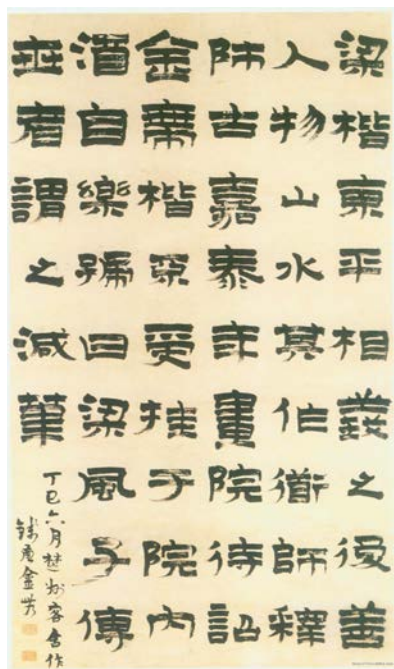 梁楷東平相義之後善
人物山水其作道師釋
師古嘉泰年畫院待詔
金帶楷棄受挂于院內
酒自樂號曰梁風子傳
世者謂之減筆
丁巳六月客舍作
錢唐金